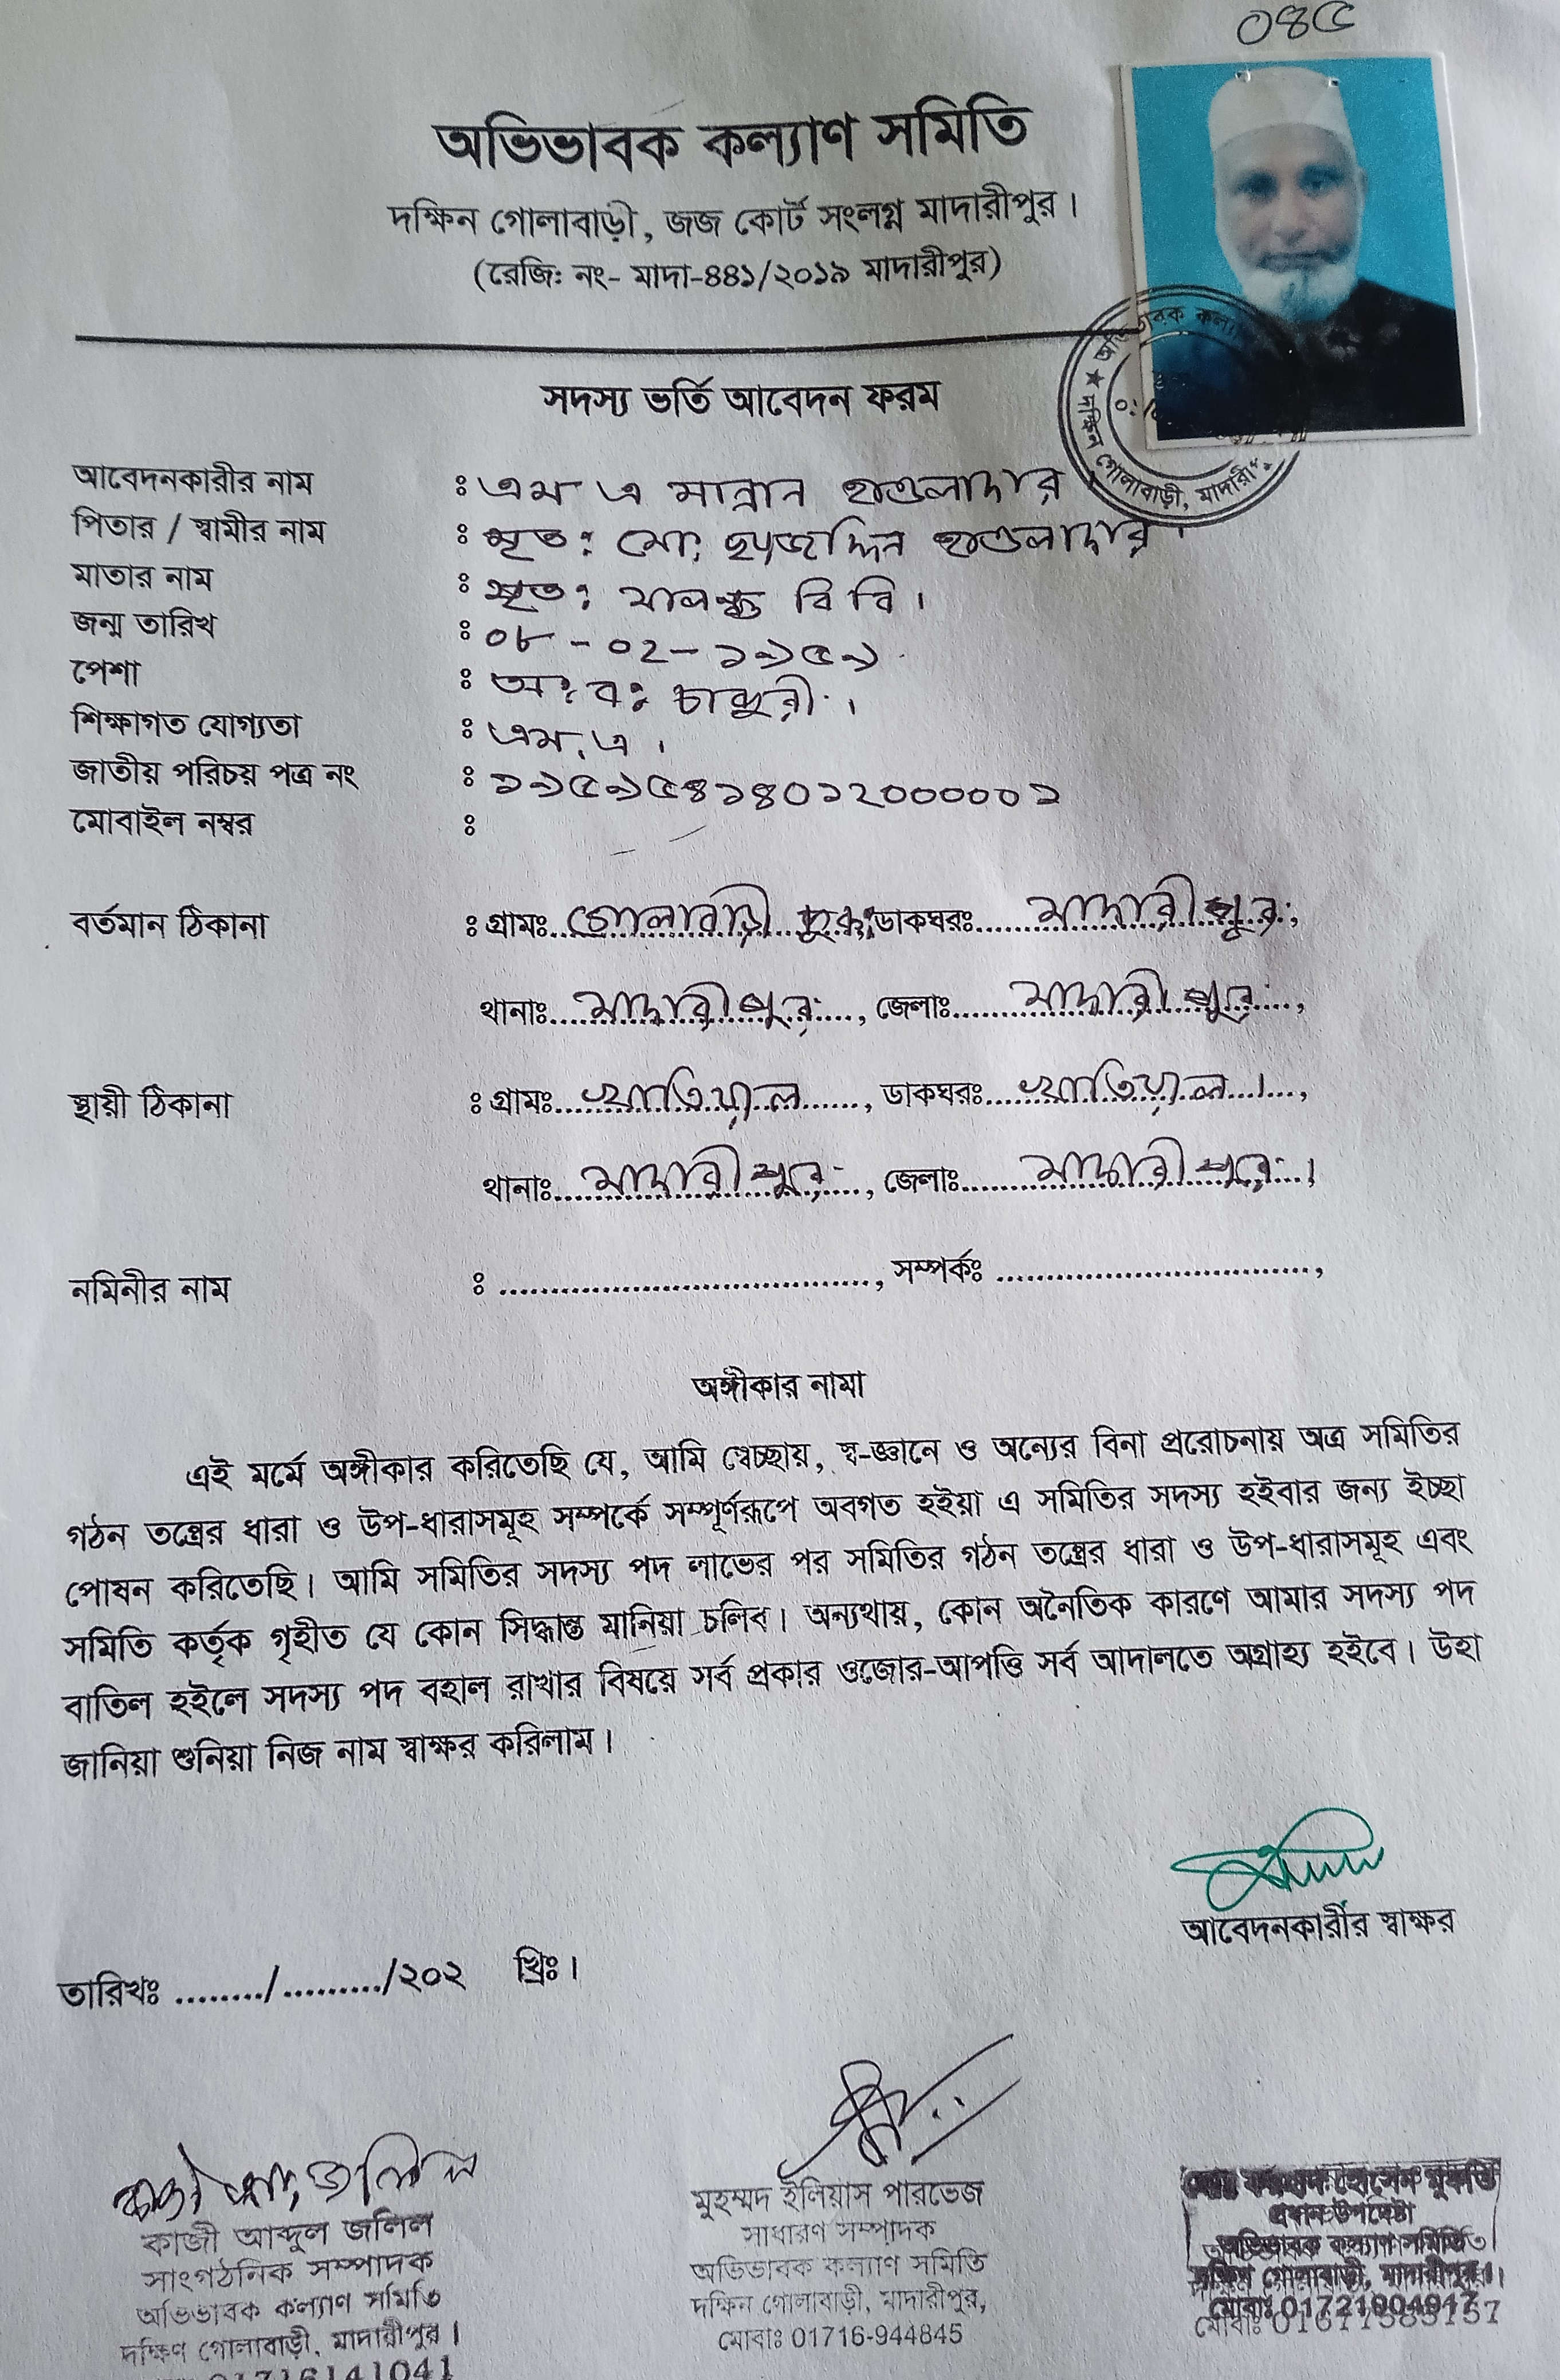 ০৪৫
অভিভাবক কল্যাণ সমিতি
দক্ষিন গোলাবাড়ী, জজ কোর্ট সংলগ্ন মাদারীপুর।
(রেজি: নং- মাদা-৪৪১/২০১৯ মাদারীপুর)
সদস্য ভর্তি আবেদন ফরম
আবেদনকারীর নাম : এম এ মান্নান হাওলাদার
পিতার / স্বামীর নাম : মৃত: মো: হাওলাদার।
মাতার নাম : মৃত: বিবি।
জন্ম তারিখ : ০৮-০২-১৯৫৯
পেশা : অ: ব: চাকুরী।
শিক্ষাগত যোগ্যতা : এম.এ।
জাতীয় পরিচয় পত্র নং : ১৯৫৯৫৪১৪০১২০০০০০১
মোবাইল নম্বর :
বর্তমান ঠিকানা : গ্রামঃ গোলাবাড়ী ডাকঘরঃ মাদারীপুর,
থানাঃ মাদারীপুর, জেলাঃ মাদারীপুর,
স্থায়ী ঠিকানা : গ্রামঃ খাতিয়াল, ডাকঘরঃ খাতিয়াল।,
থানাঃ মাদারীপুর, জেলাঃ মাদারীপুর।
নমিনীর নাম : ...................................., সম্পর্কঃ ..................................,
অঙ্গীকার নামা
এই মর্মে অঙ্গীকার করিতেছি যে, আমি স্বেচ্ছায়, স্ব-জ্ঞানে ও অন্যের বিনা প্ররোচনায় অত্র সমিতির
গঠন তন্ত্রের ধারা ও উপ-ধারাসমূহ সম্পর্কে সম্পূর্ণরূপে অবগত হইয়া এ সমিতির সদস্য হইবার জন্য ইচ্ছা
পোষন করিতেছি। আমি সমিতির সদস্য পদ লাভের পর সমিতির গঠন তন্ত্রের ধারা ও উপ-ধারাসমূহ এবং
সমিতি কর্তৃক গৃহীত যে কোন সিদ্ধান্ত মানিয়া চলিব। অন্যথায়, কোন অনৈতিক কারণে আমার সদস্য পদ
বাতিল হইলে সদস্য পদ বহাল রাখার বিষয়ে সর্ব প্রকার ওজোর-আপত্তি সর্ব আদালতে অগ্রাহ্য হইবে। উহা
জানিয়া শুনিয়া নিজ নাম স্বাক্ষর করিলাম।
আবেদনকারীর স্বাক্ষর
তারিখঃ ......../........./২০২ খ্রিঃ।
কাজী আব্দুল জলিল
সাংগঠনিক সম্পাদক
অভিভাবক কল্যাণ সমিতি
দক্ষিণ গোলাবাড়ী, মাদারীপুর।
01716141041
মুহম্মদ ইলিয়াস পারভেজ
সাধারণ সম্পাদক
অভিভাবক কল্যাণ সমিতি
দক্ষিণ গোলাবাড়ী, মাদারীপুর,
মোবাঃ 01716-944845
হোসেন
প্রধান উপদেষ্টা
অভিভাবক কল্যাণ সমিতি
দক্ষিণ গোলাবাড়ী, মাদারীপুর।
মোবাঃ